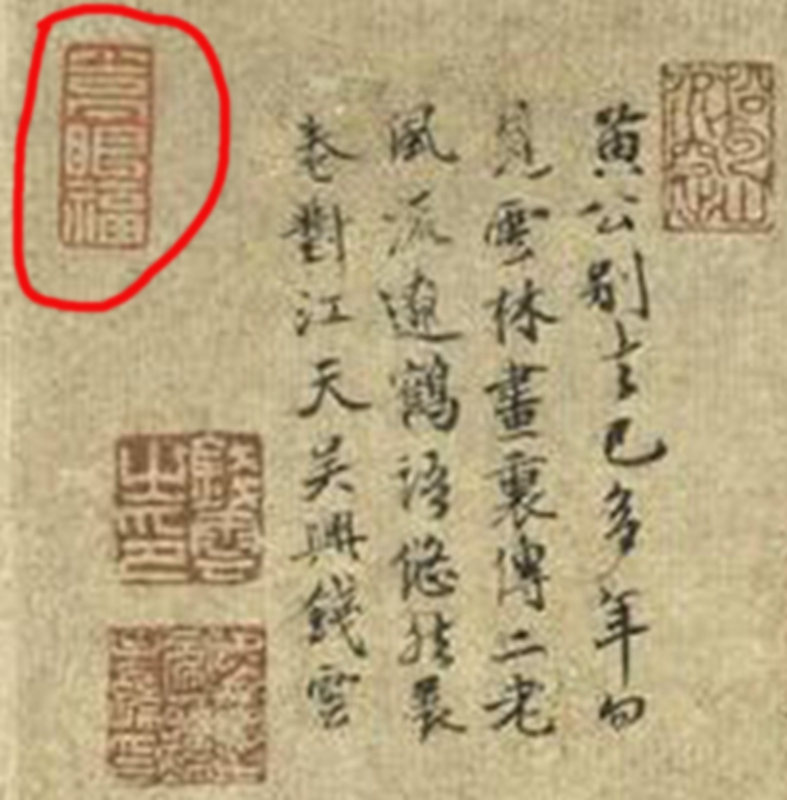 黄公別去已多年忽
見雲林畫裏傳二老
風流遼鶴語悠然展
卷對江天吴興錢雲
錢雲之印